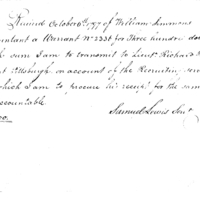 Received October 6th 1797 of William Simmons
ountant a Warrant No 2338 for Three hundr doll
ch sum I am to transmit to Lieut Richard
at Pittsburgh on account of the Recruiting serv
which I am to procure his receipt for the same
accountable
Samuel Lewis Senr